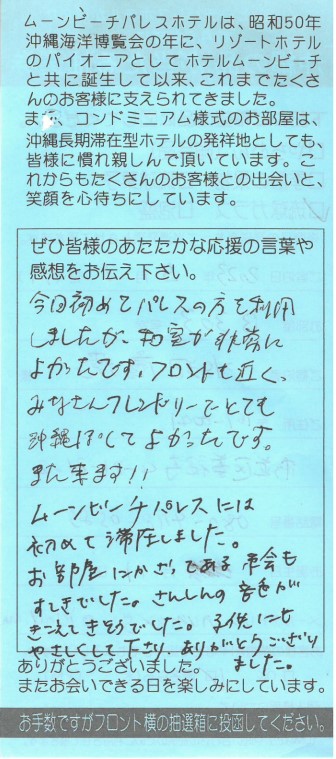 ムーンビーチパレスホテルは、昭和50年
沖縄海洋博覧会の年に、リゾートホテル
のパイオニアとしてホテルムーンビーチ
と共に誕生して以来、これまでたくさ
んのお客様に支えられてきました。
また、コンドミニアム様式のお部屋は、
沖縄長期滞在型ホテルの発祥地としても、
皆様に慣れ親しんで頂いています。こ
れからもたくさんのお客様との出会いと、
笑顔を心待ちにしています。
ぜひ皆様のあたたかな応援の言葉や
感想をお伝え下さい。
今回初めてパレスの方を利用
しましたが、和室が非常に
よかったです。フロントも近く、
みなさんフレンドリーでとても
沖縄ぽくてよかったです。
また来ます!!
ムーンビーチパレスには
初めて滞在しました。
お部屋にかざってある絵も
すてきでした。さんしんの音色が
きこえてきそうでした。子供にも
やさしくして下さり、ありがとうござい
ました。
ありがとうございました。
またお会いできる日を楽しみにしています。
お手数ですがフロント横の抽選箱に投函してください。